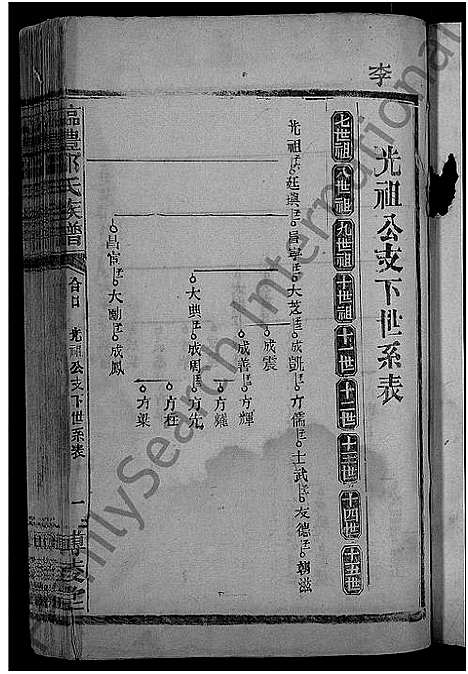 李
光祖公支下世系表
七世祖 八世祖 九世祖 十世祖 十一世 十二世 十三世 十四世 十五世
光祖 廷與 昌寧 大芝 成凱 方儒 士武 友德 朝滋
成震
成善 方輝
方耀
大典 成周 方先
方柱
方梁
昌富 大勳 成鳳
臨澧邓氏族谱
光祖公支下世系表
一
博陵堂
FamilySearch International